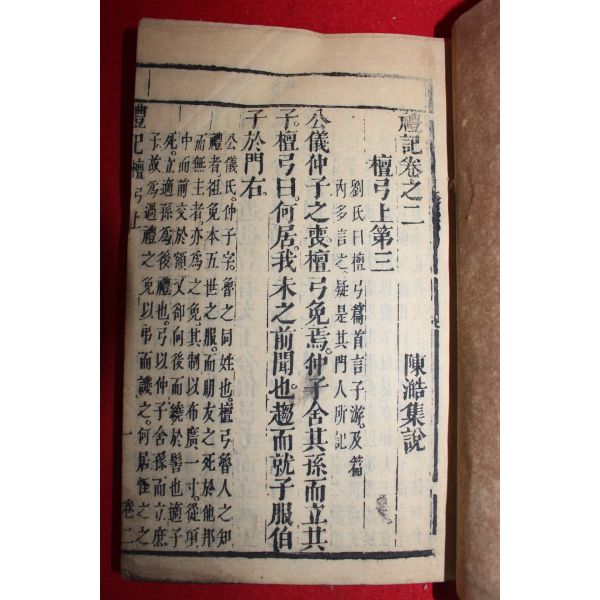 禮記卷之二
陳澔集說
檀弓上第三
劉氏曰檀弓篇首言子游及篇
內多言之疑是其門人所記
公儀仲子之喪檀弓免焉仲子舍其孫而立其
子檀弓曰何居我未之前聞也趨而就子服伯
子於門右
公儀氏仲子字魯之同姓也檀弓魯人之知
禮者袒免本五世之服而朋友之死於他邦
而無主者亦為之免其制以布廣一寸從項
中而前交於額又卻向後而繞於髻也適子
死立適孫為後禮也弓以仲子舍孫而立庶
子故為過禮之免以弔而譏之何居怪之之
禮記檀弓上
一
卷二